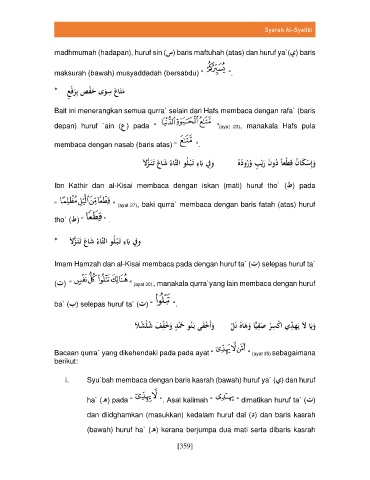 Syarah Al-Syatibi
madhmumah (hadapan), huruf sin (س) baris maftuhah (atas) dan huruf ya`(ي) baris
maksurah (bawah) musyaddadah (bersabdu) “ يُسَيِّرُكُمْ ”.
* مَتَاعَ سِوَى حَفْصٍ بِرَفْعٍ
Bait ini menerangkan semua qurra` selain dari Hafs membaca dengan rafa` (baris
depan) huruf `ain (ع) pada “ مَّتَٰعُ ٱلْحَيَوٰةِ ٱلدُّنْيَا ” (ayat 23), manakala Hafs pula
membaca dengan nasab (baris atas) “ مَّتَٰعَ ”.
وَإِسْكَانُ قِطْعاً دُونَ رَيْبٍ وُرُودُهُ
Ibn Kathir dan al-Kisai membaca dengan iskan (mati) huruf tho` (ط) pada
“ قِطْعًا مِّنَ ٱلَّيْلِ مُظْلِمًا ” (ayat 27), baki qurra` membaca dengan baris fatah (atas) huruf
tho` (ط) “ قِطَعًا ” .
* وفِي بَاءِ تَبْلُو التَّاءُ شَاعَ تَنَزُّلاَ
Imam Hamzah dan al-Kisai membaca pada dengan huruf ta` (ت) selepas huruf ta`
(ت) “ هُنَالِكَ تَتْلُوا۟ كُلُّ نَفْسٍ ” (ayat 30) , manakala qurra`yang lain membaca dengan huruf
ba` (ب) selepas huruf ta` (ت) “ تَبْلُوا۟ ”.
وَيَا لاَ يَهِدِّي اكْسِرْ صَفِيًّا وَهَاهُ نَلْ وَأَخْفَى بَنُو حَمْدٍ وَخُفِّفَ شُلْشُلاَ
Bacaan qurra` yang dikehendaki pada pada ayat “ أَمَّن لَّا يَهِدِّىٓ ” (ayat 35) sebagaimana
berikut:
i. Syu`bah membaca dengan baris kasrah (bawah) huruf ya` (ي) dan huruf
ha` (ﻫ) pada “ لَّا يِهِدِّىٓ ”. Asal kalimah “ يهتدى ” dimatikan huruf ta` (ت)
dan diidghamkan (masukkan) kedalam huruf dal (د) dan baris kasrah
(bawah) huruf ha` (ﻫ) kerana berjumpa dua mati serta dibaris kasrah
[359]